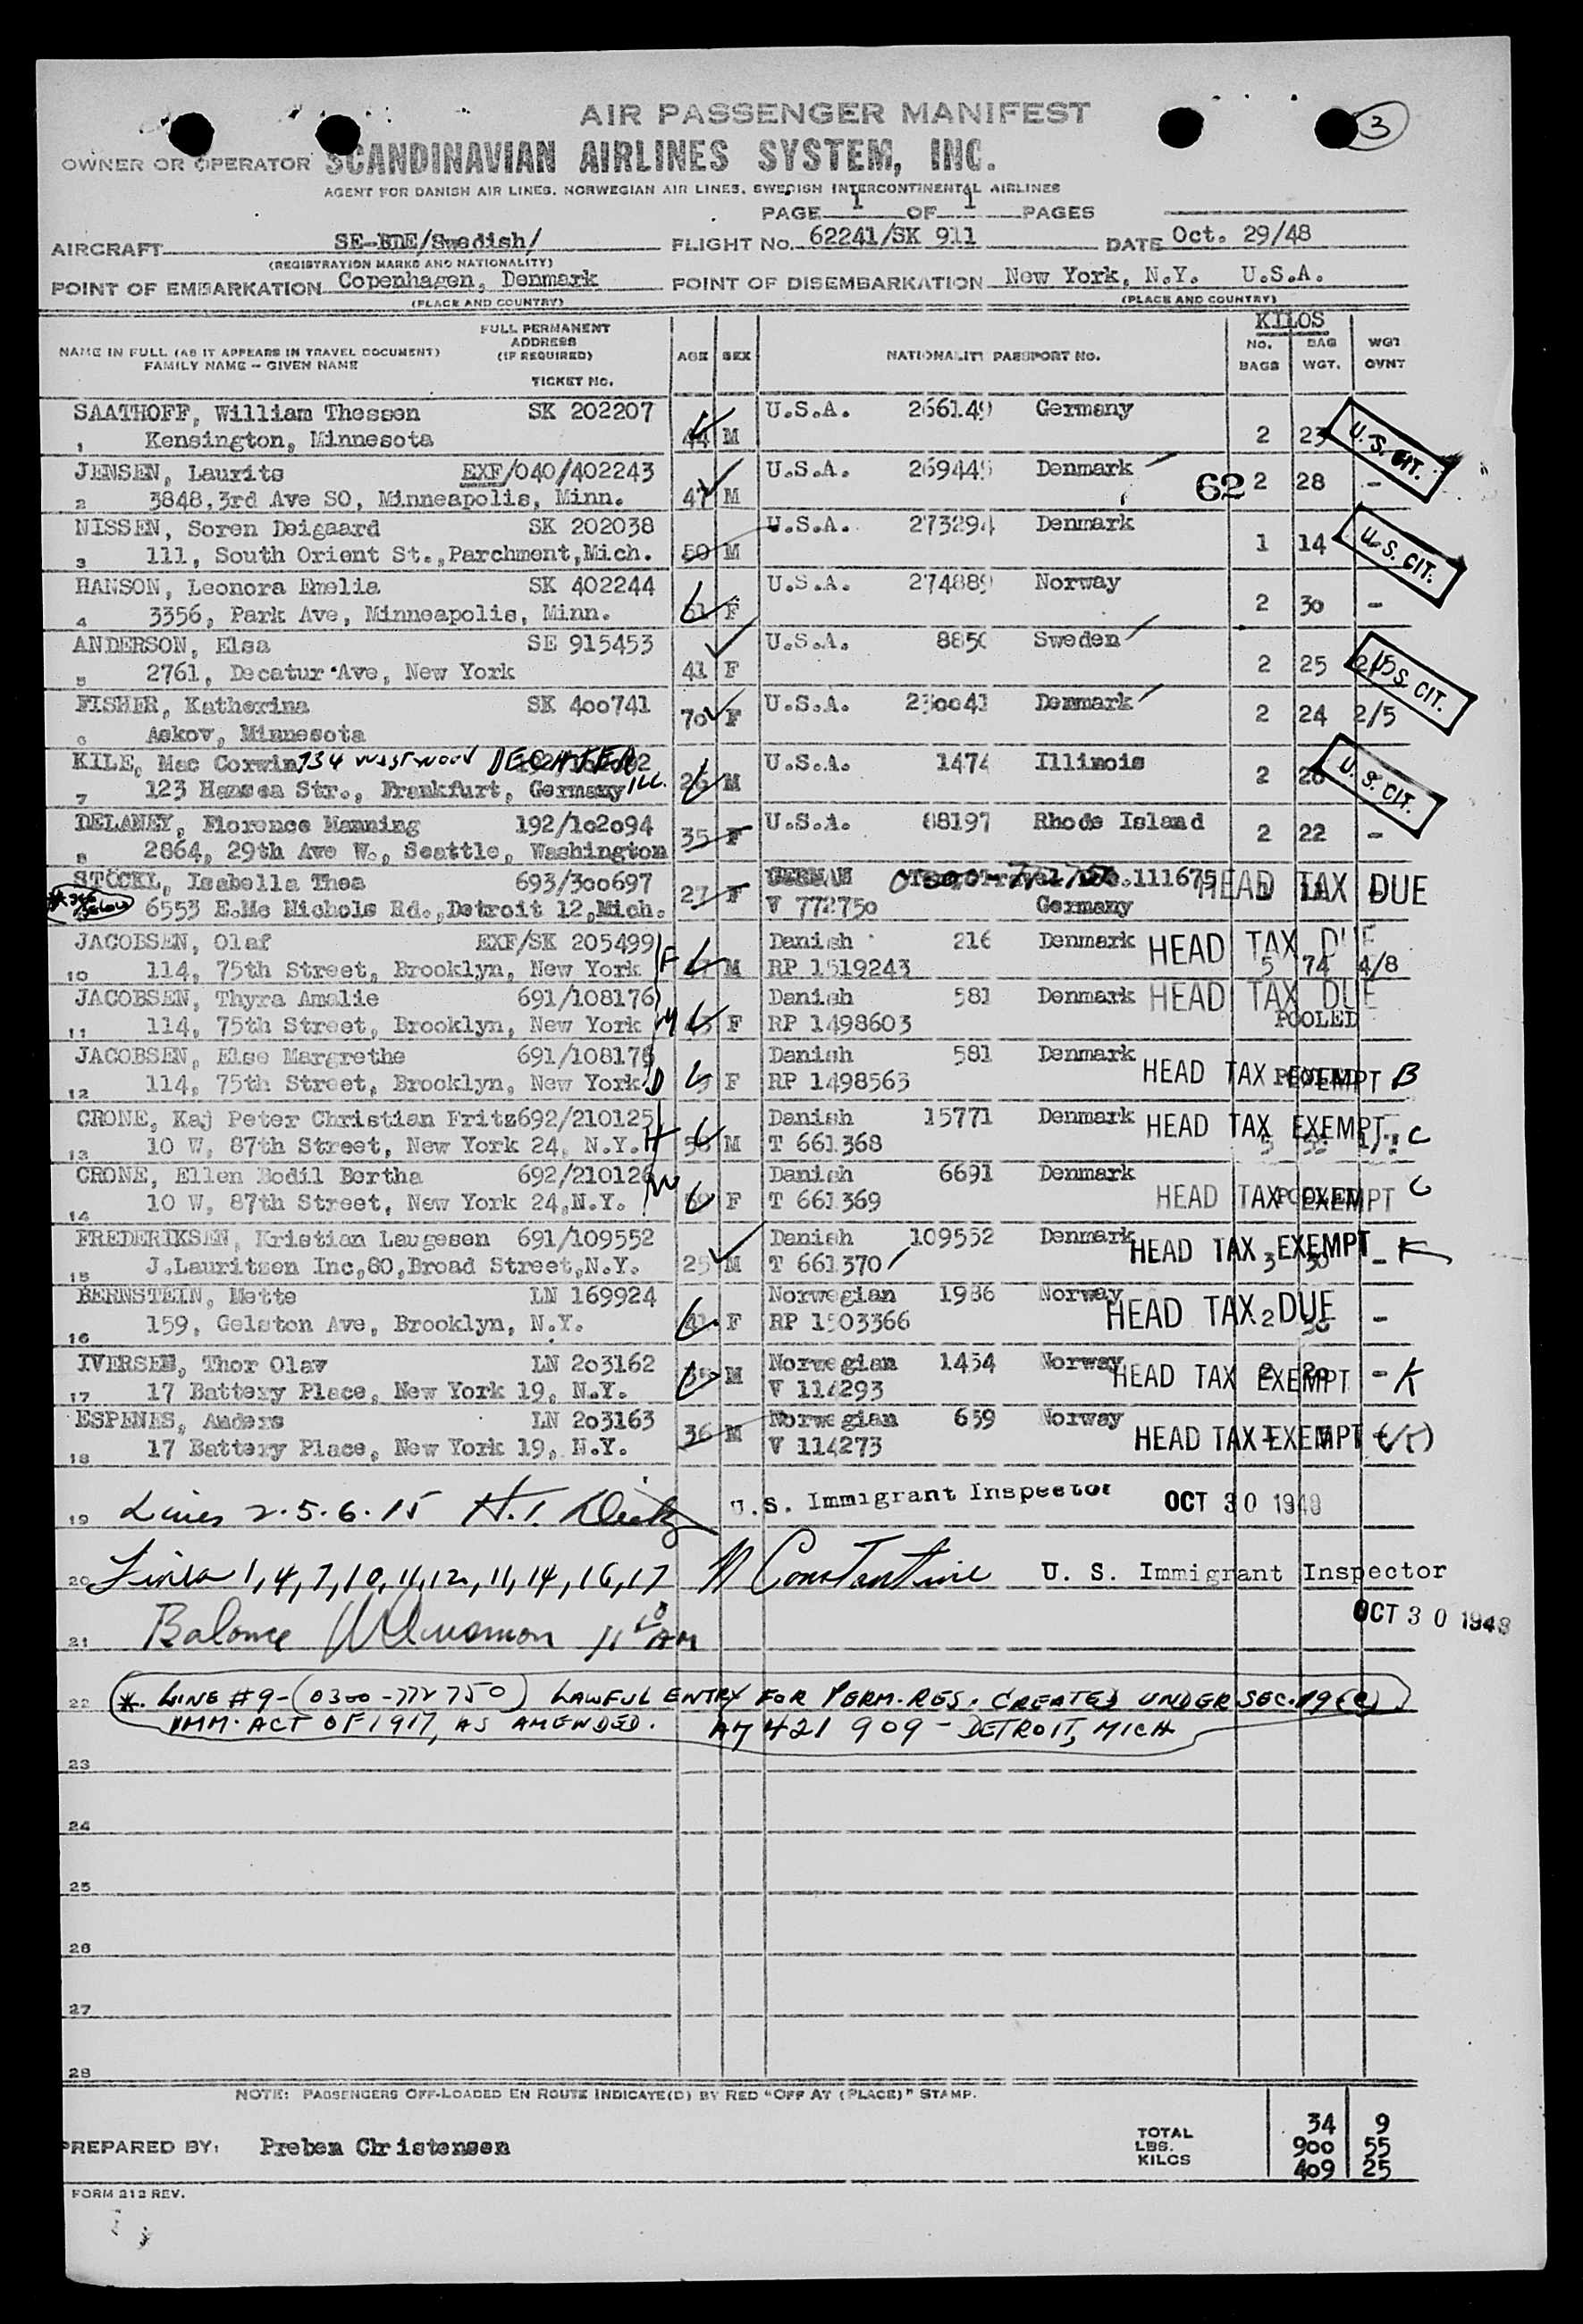 3
AIR PASSENGER MANIFEST
OWNER OR OPERATOR SCANDINAVIAN AIRLINES SYSTEM, INC.
AGENT FOR DANISH AIR LINES, NORWEGIAN AIR LINES, SWEDISH INTERCONTINENTAL AIRLINES
PAGE 1 OF 1 PAGES
AIRCRAFT SE-BDE/Swedish/ FLIGHT NO. 62241/SK 911 DATE Oct. 29/48
(REGISTRATION MARKS AND NATIONALITY)
POINT OF EMBARKATION Copenhagen, Denmark POINT OF DISEMBARKATION New York, N.Y. U.S.A.
(PLACE AND COUNTRY) (PLACE AND COUNTRY)
KILOS
NAME IN FULL (AS IT APPEARS IN TRAVEL DOCUMENT) FAMILY NAME - GIVEN NAME FULL PERMANENT ADDRESS (IF REQUIRED) TICKET NO. AGE SEX NATIONALITY PASSPORT NO. NO. BAGS BAG WGT. WGT OVNT
SAATHOFF, William Thessen SK 202207 U.S.A. 266149 Germany
1 Kensington, Minnesota 44 M 2 23 U.S. CIT.
JENSEN, Laurits EXF/040/402243 U.S.A. 269445 Denmark
2 3848, 3rd Ave SO, Minneapolis, Minn. 47 M 62 2 28 -
NISSEN, Soren Deigaard SK 202038 U.S.A. 273294 Denmark
3 111, South Orient St., Parchment, Mich. 50 M 1 14 U.S. CIT.
HANSON, Leonora Emelia SK 402244 U.S.A. 274889 Norway
4 3356, Park Ave, Minneapolis, Minn. 61 F 2 30 -
ANDERSON, Elsa SE 915453 U.S.A. 8850 Sweden
5 2761, Decatur Ave, New York 41 F 2 25 U.S. CIT.
FISHER, Katherina SK 400741 U.S.A. 230041 Denmark
6 Askov, Minnesota 70 F 2 24 2/5
KILE, Mac Corwin 734 WESTWOOD DECATUR ILL. U.S.A. 1474 Illinois
7 123 Hansea Str., Frankfurt, Germany 26 M 2 26 U.S. CIT.
DELANEY, Florence Manning 192/102094 U.S.A. 88197 Rhode Island
8 2864, 29th Ave W., Seattle, Washington 35 F 2 22 -
STÖCKL, Isabella Thea 693/300697 GERMAN 111675 HEAD TAX DUE
* see below 6553 E.Mc Nichols Rd., Detroit 12, Mich. 27 F V 772750 Germany
JACOBSEN, Olaf EXF/SK 205499 F Danish 216 Denmark HEAD TAX DUE
10 114, 75th Street, Brooklyn, New York M RP 1519243 5 74 4/8
JACOBSEN, Thyra Amalie 691/108176 M Danish 581 Denmark HEAD TAX DUE
11 114, 75th Street, Brooklyn, New York F RP 1498603 POOLED
JACOBSEN, Else Margrethe 691/108175 Danish 581 Denmark
12 114, 75th Street, Brooklyn, New York D F RP 1498563 HEAD TAX EXEMPT B
CRONE, Kaj Peter Christian Fritz 692/210125 Danish 15771 Denmark HEAD TAX EXEMPT C
13 10 W, 87th Street, New York 24, N.Y. H M T 661368
CRONE, Ellen Bodil Bertha 692/210126 W Danish 6691 Denmark
14 10 W, 87th Street, New York 24, N.Y. F T 661369 HEAD TAX EXEMPT C
FREDERIKSEN, Kristian Laugesen 691/109552 Danish 109552 Denmark HEAD TAX EXEMPT
15 J.Lauritzen Inc,80,Broad Street,N.Y. 25 M T 661370 3 30 - K
BERNSTEIN, Mette LN 169924 Norwegian 1986 Norway HEAD TAX DUE
16 159, Gelston Ave, Brooklyn, N.Y. 41 F RP 1503366 2 -
IVERSEN, Thor Olav LN 203162 Norwegian 1454 Norway
17 17 Battery Place, New York 19, N.Y. M V 114293 HEAD TAX EXEMPT 2 20 - K
ESPENES, Anders LN 203163 Norwegian 659 Norway
18 17 Battery Place, New York 19, N.Y. 36 M V 114273 HEAD TAX EXEMPT (K)
19 Lines 2.5.6.15 U.S. Immigrant Inspector OCT 30 1948
20 Lines 1,4,7,10,11,12,11,14,16,17 N Constantine U. S. Immigrant Inspector
OCT 30 1948
21 Balance
22 *. LINE #9-(0300-772750) LAWFUL ENTRY FOR PERM. RES. CREATED UNDER SEC. 19(c)
IMM. ACT OF 1917, AS AMENDED. A7 421 909 - DETROIT, MICH
23
24
25
26
27
28
NOTE: PASSENGERS OFF-LOADED EN ROUTE INDICATE(D) BY RED "OFF AT (PLACE)" STAMP.
PREPARED BY: Preben Christensen
TOTAL 34 9
LBS. 900 55
KILOS 409 25
FORM 212 REV.